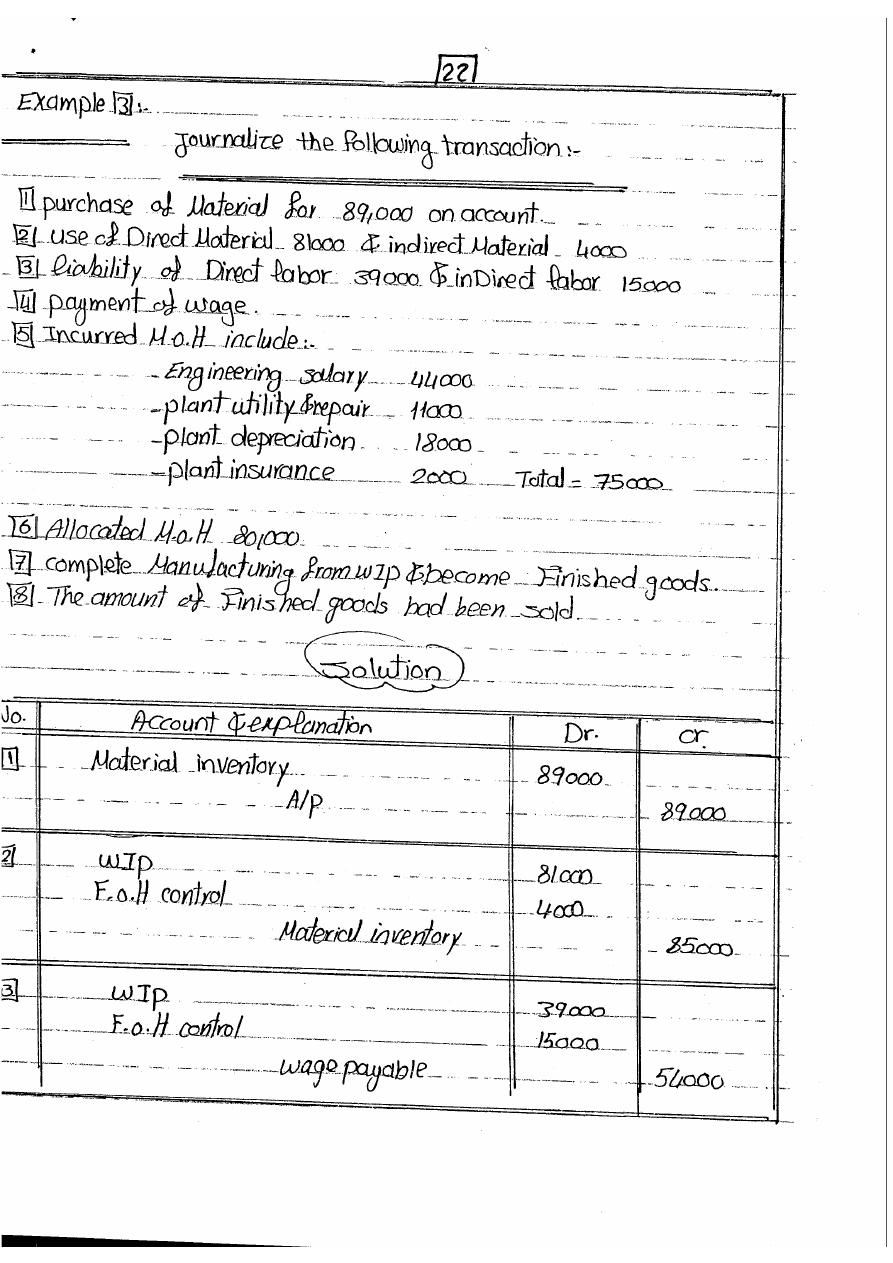 22
Example 3:-
Journalize the following transaction:-
1 purchase of Material for 89,000 on account.
2 use of Direct Material 81000 & indirect Material 4000
3 liability of Direct labor 39000 & inDirect labor 15000
4 payment of wage.
5 Incurred M.o.H include:-
- Engineering salary 44000
- plant utility & repair 11000
- plant depreciation 18000
- plant insurance 2000 Total = 75000
6 Allocated M.o.H 80,000
7 complete Manufacturing from WIP & become Finished goods.
8 The amount of Finished goods had been sold
Solution
No. Account & explanation Dr. cr.
1 Material inventory 89000
A/p 89000
2 WIP 81000
F.o.H control 4000
Material inventory 85000
3 WIP 39000
F.o.H control 15000
wage payable 54000